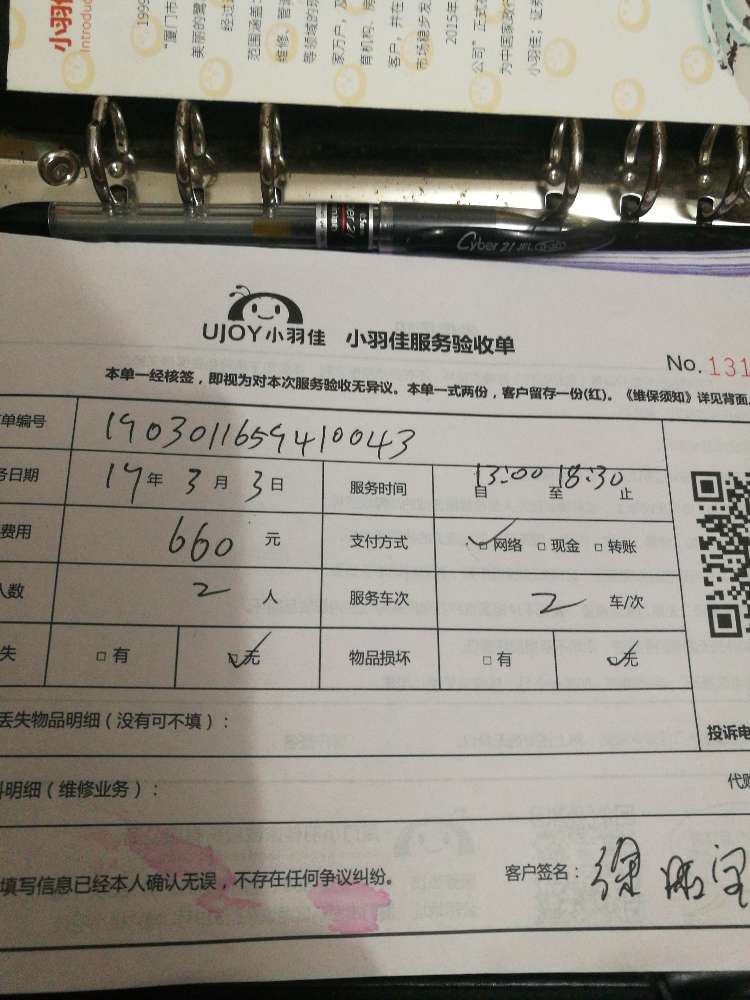 小羽
Introduc
1999
"厦门市
美丽的鹭
经过
范围涵盖
维修、管
等领域的
家万户,及
育机构、房
客户,并在
市场稳步发
2015年
公司"正式
为中国家政
小羽佳;证券
Cyber 21
UJOY小羽佳 小羽佳服务验收单
No. 131
本单一经核签,即视为对本次服务验收无异议。本单一式两份,客户留存一份(红)。《维保须知》详见背面。
单编号 1903011659410043
务日期 19年 3月 3日 服务时间 自 13:00 至 18:30 止
费用 660 元 支付方式 ✓□网络 □现金 □转账
人数 2 人 服务车次 2 车/次
失 □有 ☑无 物品损坏 □有 ☑无
丢失物品明细(没有可不填):
投诉电
料明细(维修业务):
代购
填写信息已经本人确认无误,不存在任何争议纠纷。
客户签名: